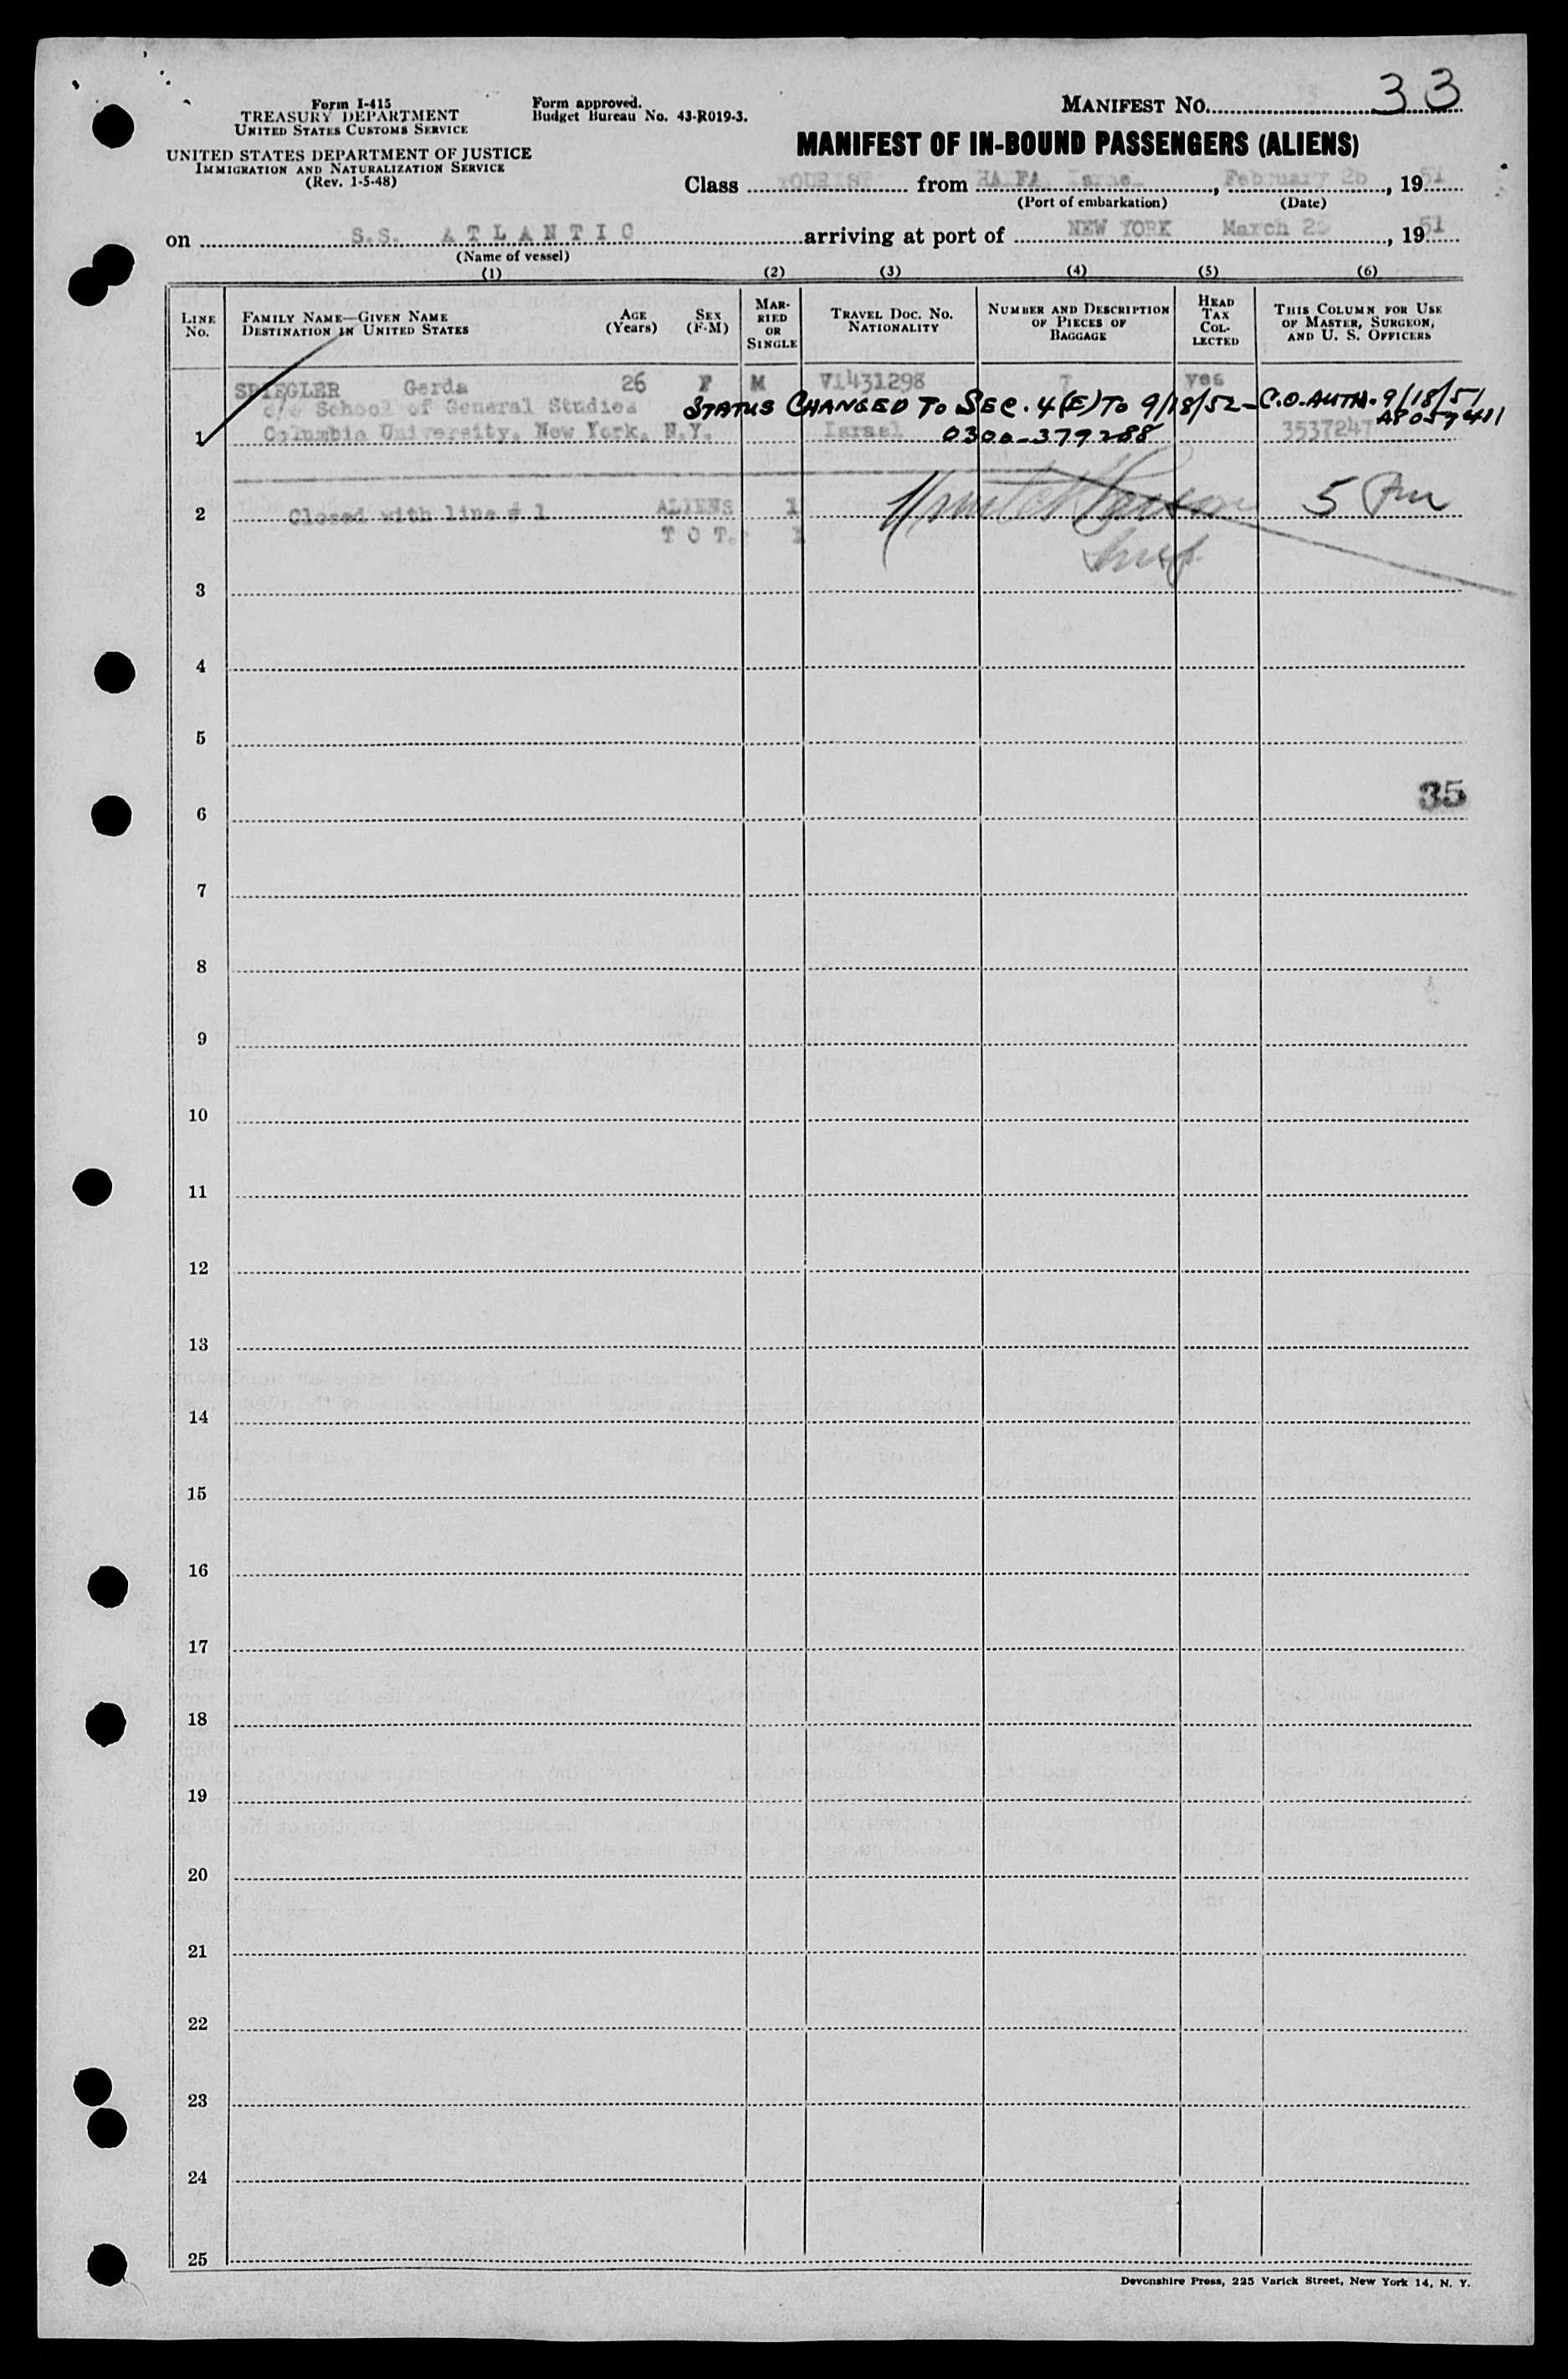 Form I-415
TREASURY DEPARTMENT
UNITED STATES CUSTOMS SERVICE
UNITED STATES DEPARTMENT OF JUSTICE
IMMIGRATION AND NATURALIZATION SERVICE
(Rev. 1-5-48)
Form approved.
Budget Bureau No. 43-R019-3.
MANIFEST NO. 33
MANIFEST OF IN-BOUND PASSENGERS (ALIENS)
Class TOURIST from HAIFA, Israel, February 26, 1951
(Port of embarkation) (Date)
on S.S. ATLANTIC arriving at port of NEW YORK March 25, 1951
(Name of vessel)
(1) (2) (3) (4) (5) (6)
LINE No. FAMILY NAME—GIVEN NAME DESTINATION IN UNITED STATES AGE (Years) SEX (F-M) MARRIED OR SINGLE TRAVEL DOC. NO. NATIONALITY NUMBER AND DESCRIPTION OF PIECES OF BAGGAGE HEAD TAX COLLECTED THIS COLUMN FOR USE OF MASTER, SURGEON, AND U. S. OFFICERS
SPIEGLER Gerda 26 F M V1431298 7 yes
c/o School of General Studies STATUS CHANGED TO SEC. 4(E) TO 9/18/52 - C.O. AUTH. 9/18/51
A8057411
1 Columbia University, New York, N.Y. Israel 0300-379288 3537247
2 Closed with line # 1 ALIENS 1 5
T O T. 1
3
4
5
35
6
7
8
9
10
11
12
13
14
15
16
17
18
19
20
21
22
23
24
25
Devonshire Press, 225 Varick Street, New York 14, N. Y.